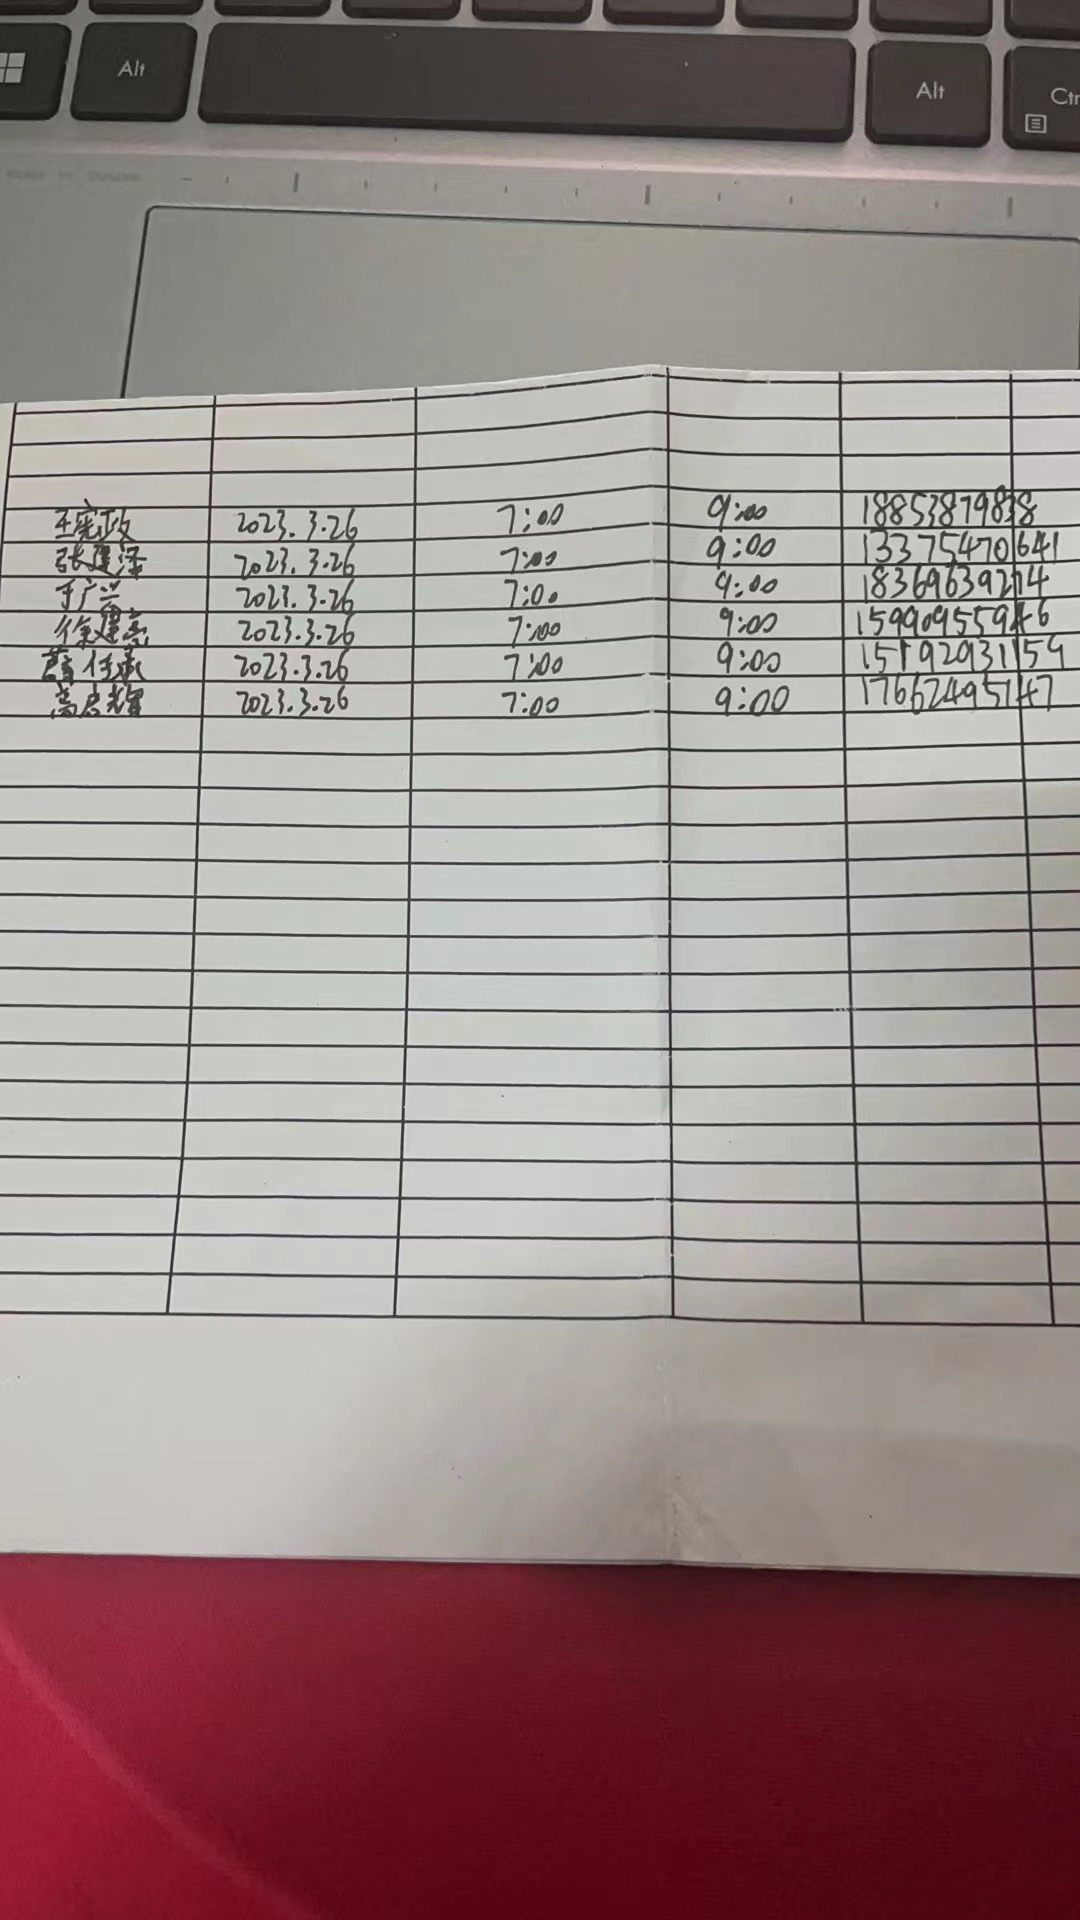 Alt Alt Ctr
王宪政 2023.3.26 7:00 9:00 18853879838
张建泽 2023.3.26 7:00 9:00 13375470641
于广兴 2023.3.26 7:00 9:00 18369639214
徐建亮 2023.3.26 7:00 9:00
任承 2023.3.26 7:00 9:00 15192931154
高启耀 2023.3.26 7:00 9:00 17662495147